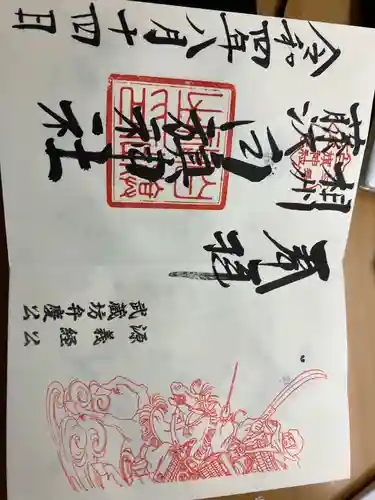 源義経公
武蔵坊弁慶公
奉拝
相州
藤澤
白旗神社
令和四年八月十四日